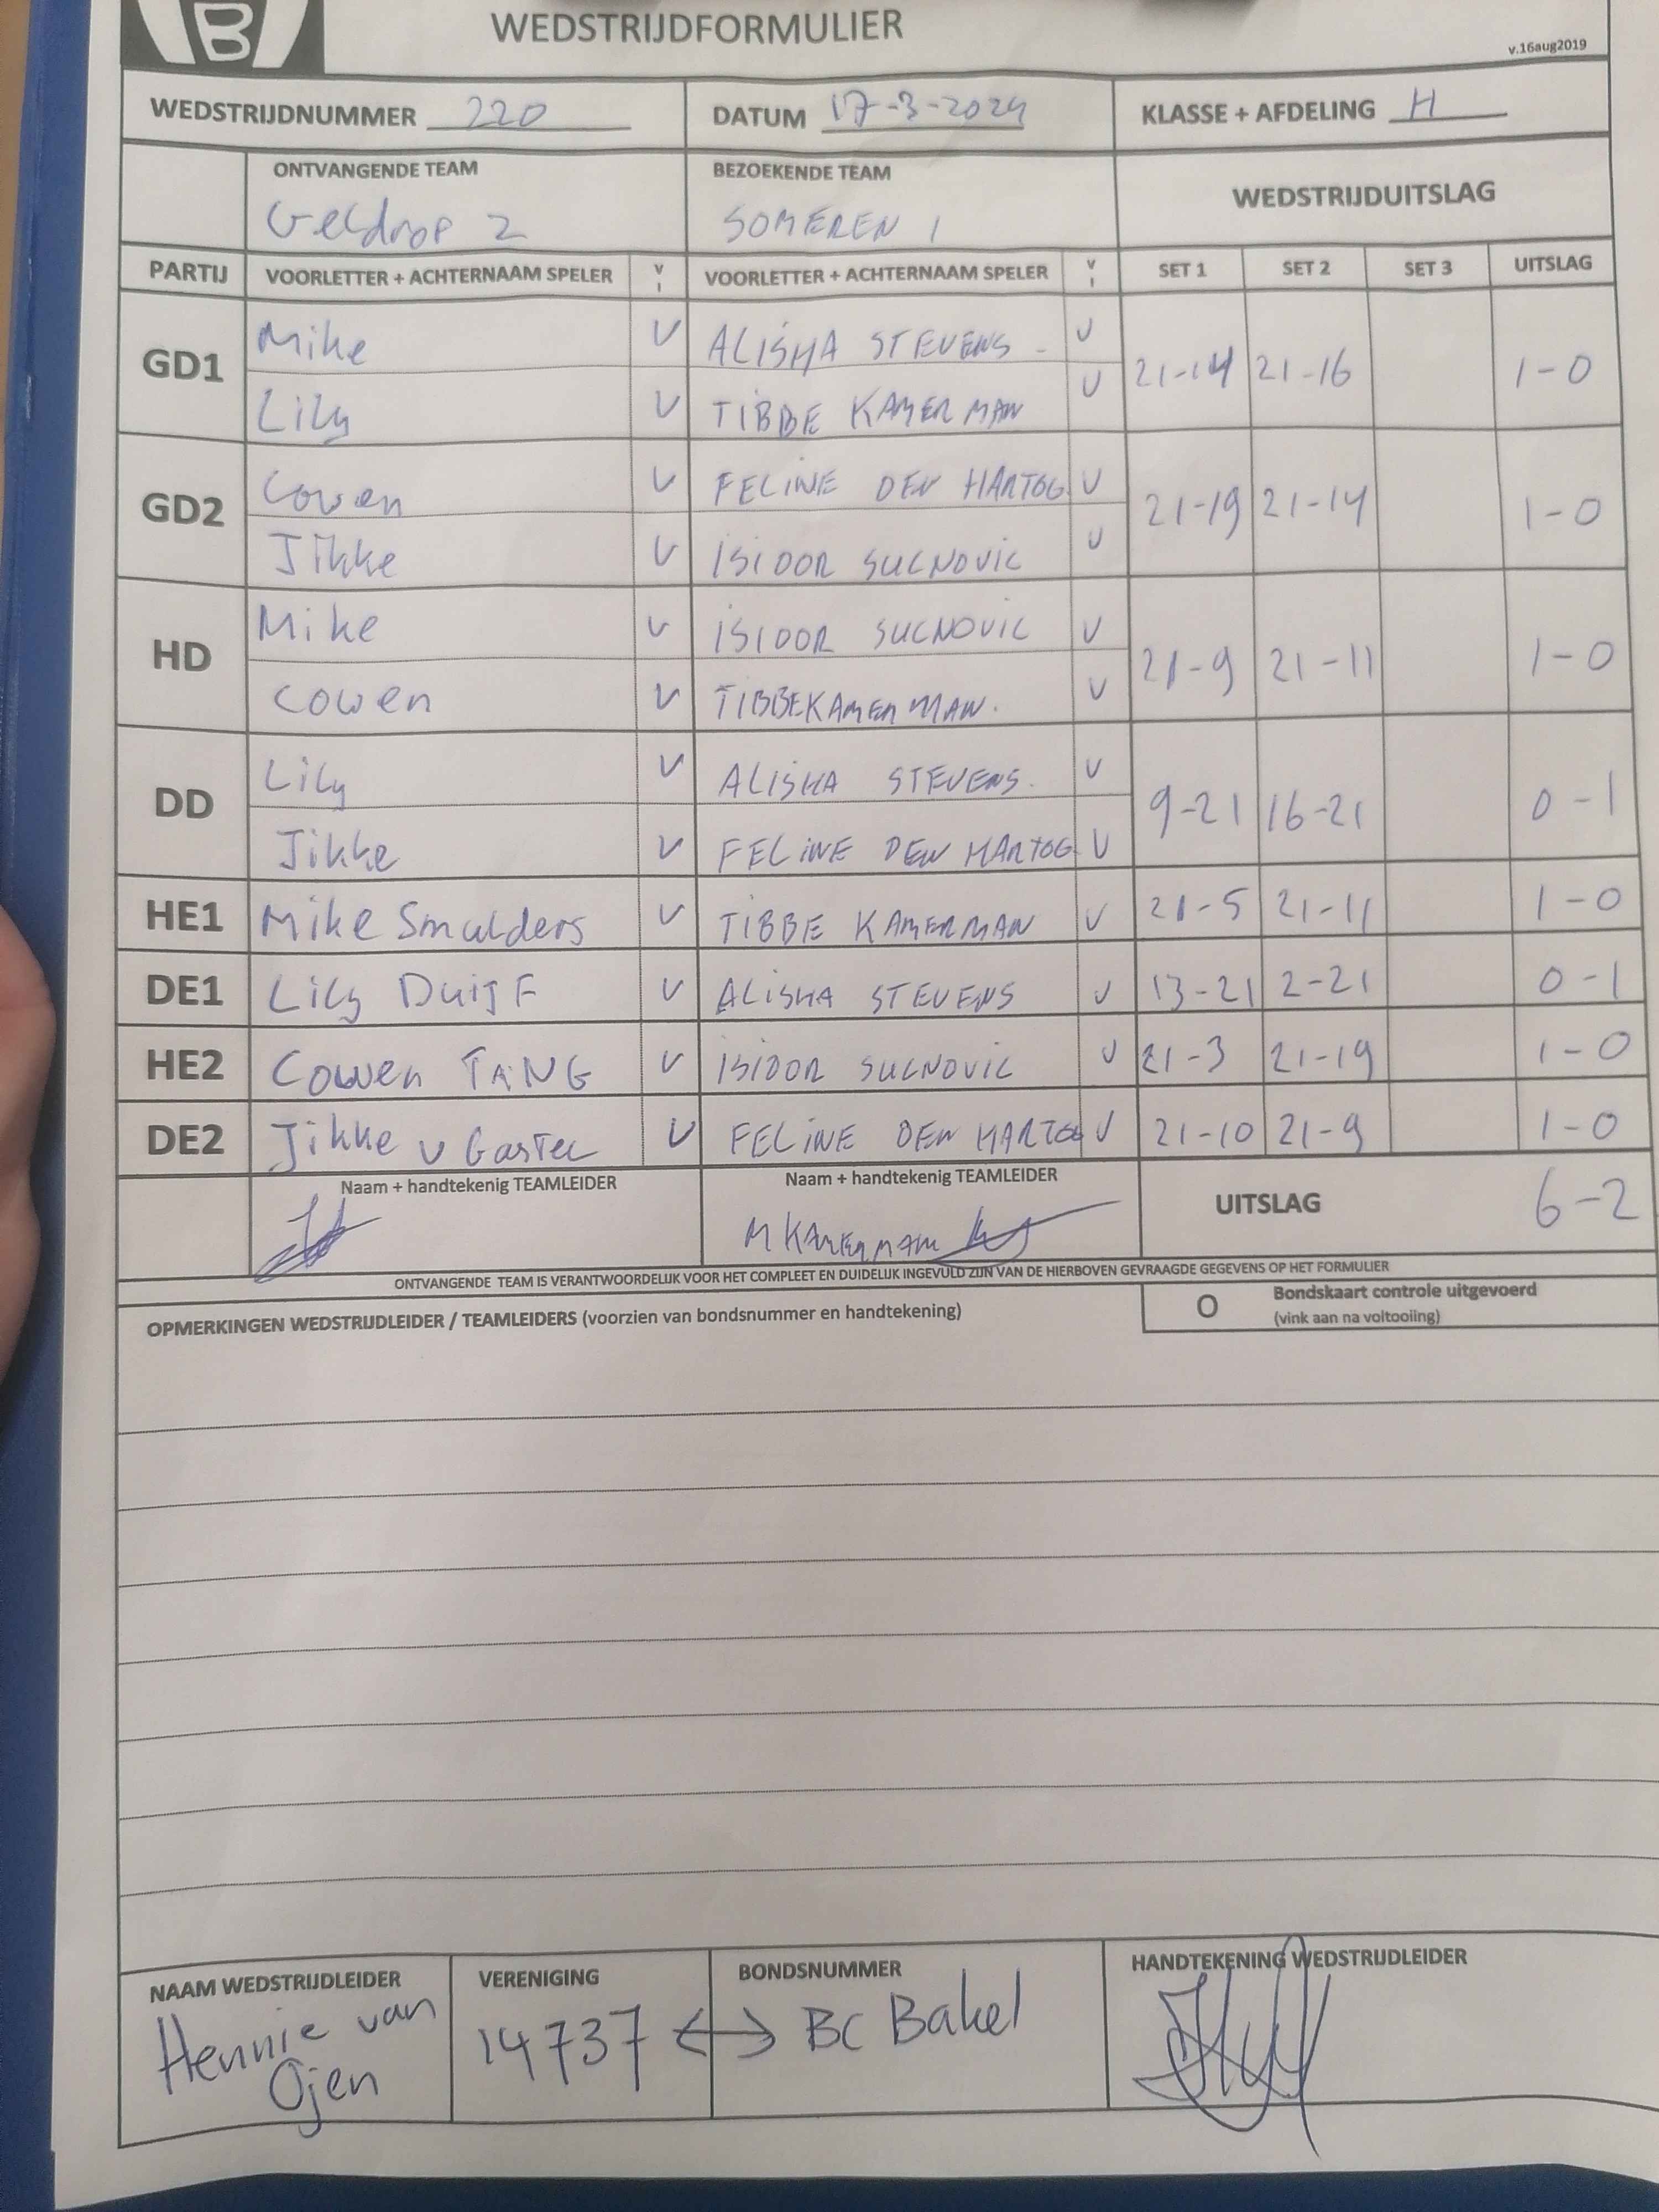 B
WEDSTRIJDFORMULIER
v.16aug2019
WEDSTRIJDNUMMER 220 DATUM 17-3-2024 KLASSE + AFDELING H
ONTVANGENDE TEAM BEZOEKENDE TEAM WEDSTRIJDUITSLAG
Geldrop 2 SOMEREN 1
PARTIJ VOORLETTER + ACHTERNAAM SPELER V I VOORLETTER + ACHTERNAAM SPELER V I SET 1 SET 2 SET 3 UITSLAG
GD1 Mike V ALISHA STEVENS - V 21-14 21-16 1-0
Lily V TIBBE KAMERMAN V
GD2 Cowen V FELINE DEN HARTOG V 21-19 21-14 1-0
Jikke V ISIDOOR SUCNOVIC V
HD Mike V ISIDOOR SUCNOVIC V 21-9 21-11 1-0
Cowen V TIBBE KAMERMAN. V
DD Lily V ALISHA STEVENS. V 9-21 16-21 0-1
Jikke V FELINE DEN HARTOG V
HE1 Mike Smulders V TIBBE KAMERMAN V 21-5 21-11 1-0
DE1 Lily Duijf V ALISHA STEVENS V 13-21 2-21 0-1
HE2 Cowen TANG V ISIDOOR SUCNOVIC V 21-3 21-19 1-0
DE2 Jikke v Gastel V FELINE DEN HARTOG V 21-10 21-9 1-0
Naam + handtekenig TEAMLEIDER Naam + handtekenig TEAMLEIDER UITSLAG 6-2
M KAMERMAN
ONTVANGENDE TEAM IS VERANTWOORDELIJK VOOR HET COMPLEET EN DUIDELIJK INGEVULD ZIJN VAN DE HIERBOVEN GEVRAAGDE GEGEVENS OP HET FORMULIER
OPMERKINGEN WEDSTRIJDLEIDER / TEAMLEIDERS (voorzien van bondsnummer en handtekening) O Bondskaart controle uitgevoerd
(vink aan na voltooiing)
NAAM WEDSTRIJDLEIDER VERENIGING BONDSNUMMER HANDTEKENING WEDSTRIJDLEIDER
Hennie van 14737 <-> BC Bakel
Ojen